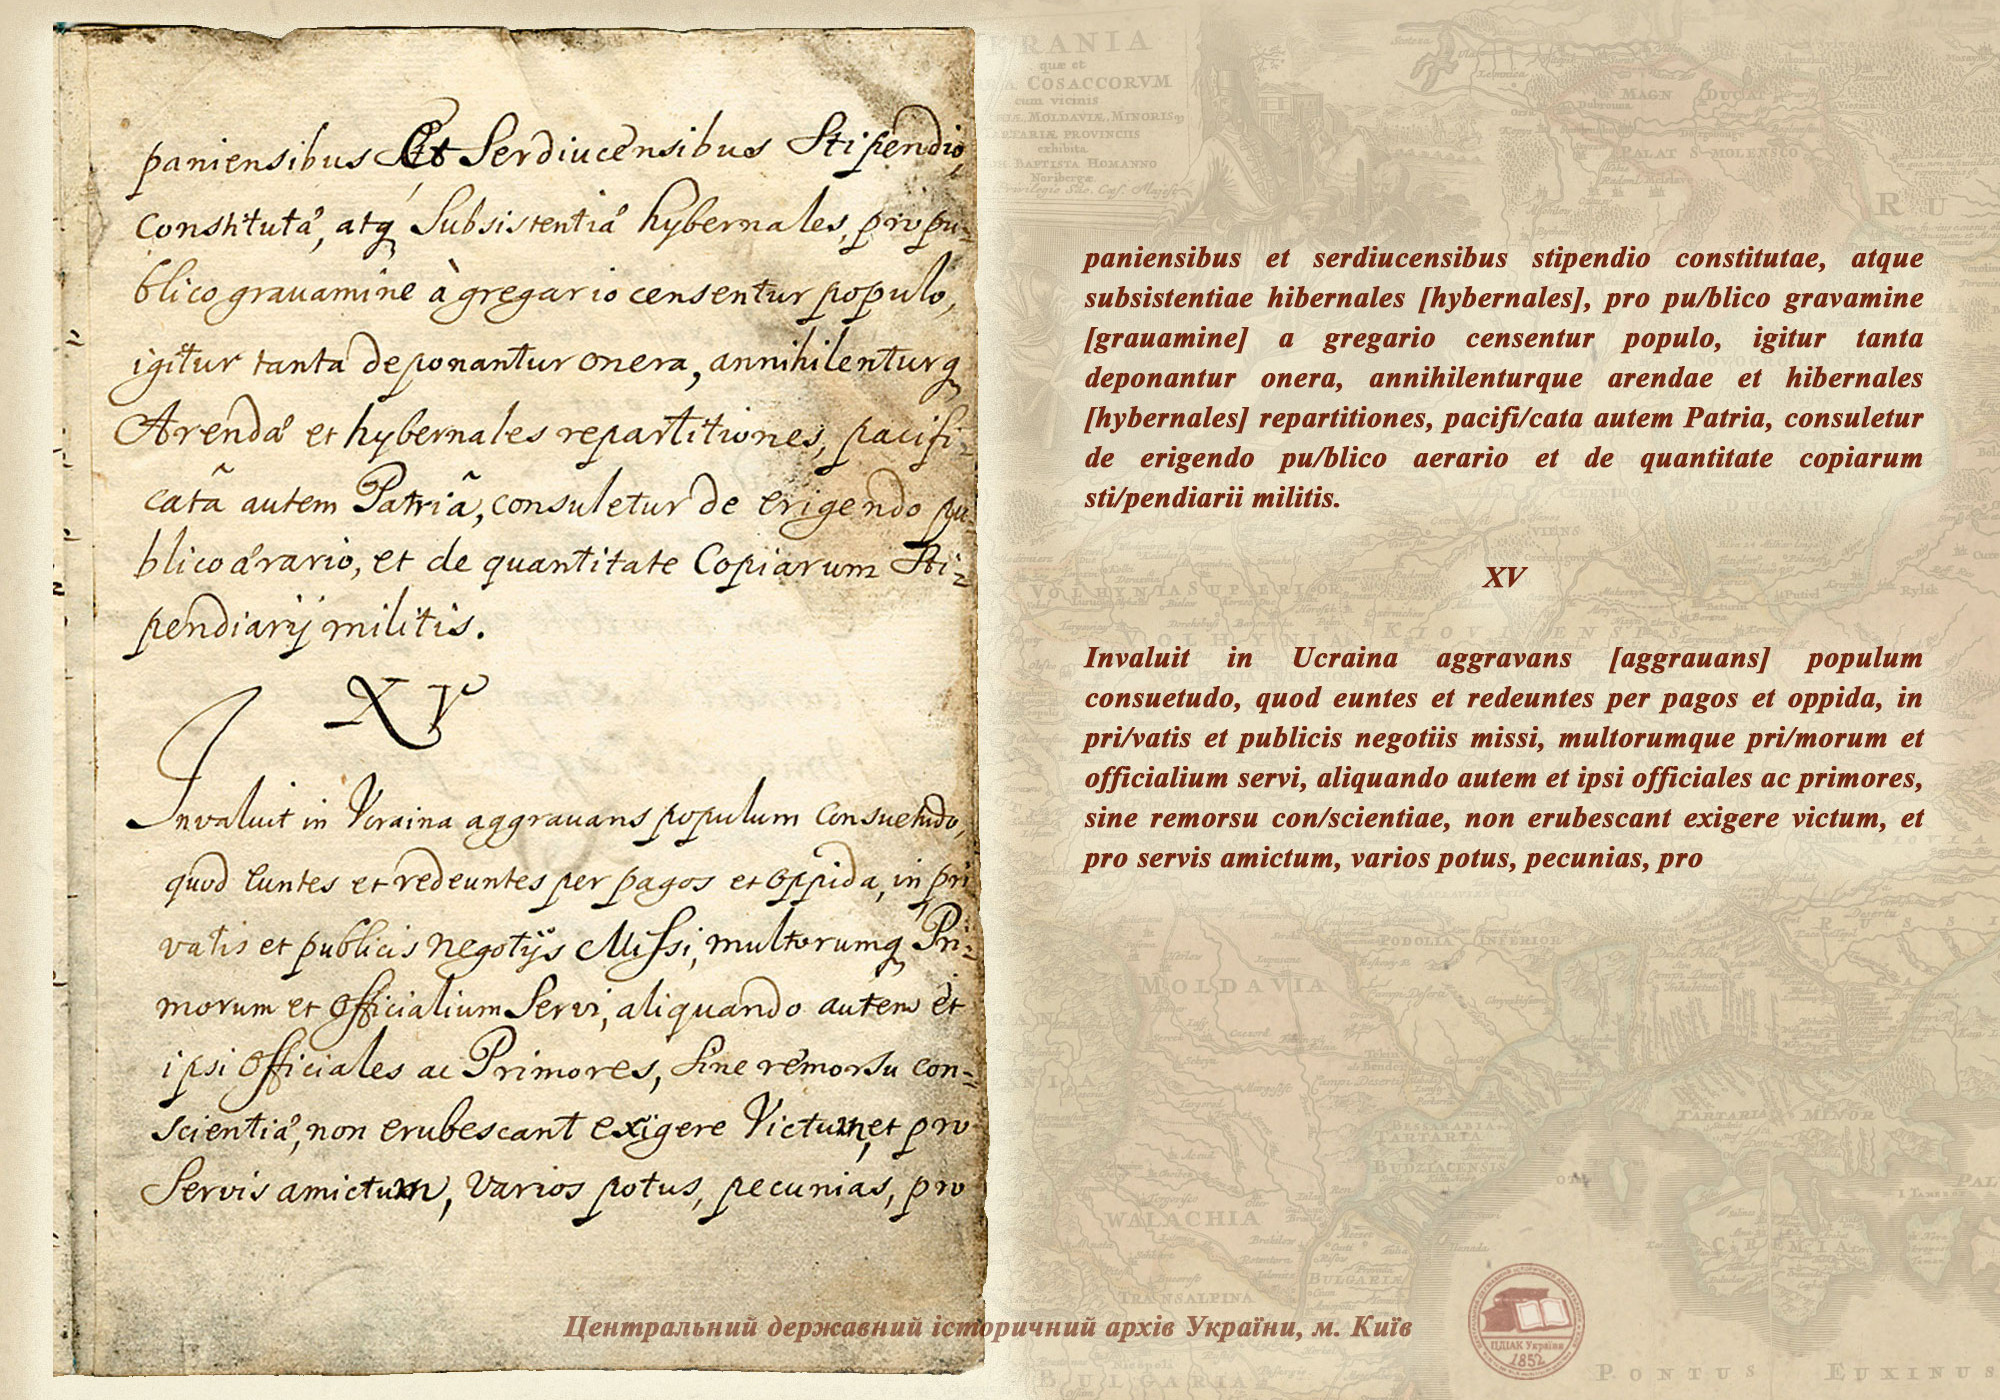 paniensibus Et Serdiucensibus Stipendio,
Constituta', atq Subsistentia' hybernales, pro pu=
blico grauamine à gregario censentur populo,
igitur tanta deponantur onera, annihilenturq
Arenda' et hybernales repartitiones, pacifi=
catã autem Patriã, consuletur de erigendo pu=
blico a'rario, et de quantitate Copiarum Sti=
pendiarij militis.
XV
Invaluit in Vcraina aggrauans populum Consuetudo,
quod Euntes et redeuntes per pagos et oppida, in pri
vatis et publicis negotijs Missi, multorumq Pri=
morum et Officialium Servi, aliquando autem et
ipsi Officiales ac Primores, Sine remorsu con=
scientia', non erubescant exigere Victum, et pro
Servis amictum, varios potus, pecunias, pro
paniensibus et serdiucensibus stipendio constitutae, atque
subsistentiae hibernales [hybernales], pro pu/blico gravamine
[grauamine] a gregario censentur populo, igitur tanta
deponantur onera, annihilenturque arendae et hibernales
[hybernales] repartitiones, pacifi/cata autem Patria, consuletur
de erigendo pu/blico aerario et de quantitate copiarum
sti/pendiarii militis.
XV
Invaluit in Ucraina aggravans [aggrauans] populum
consuetudo, quod euntes et redeuntes per pagos et oppida, in
pri/vatis et publicis negotiis missi, multorumque pri/morum et
officialium servi, aliquando autem et ipsi officiales ac primores,
sine remorsu con/scientiae, non erubescant exigere victum, et
pro servis amictum, varios potus, pecunias, pro
Центральний державний історичний архів України, м. Київ
ЦДІАК України
1852
COSACCORVM
cum vicinis
MOLDAVIÆ, MINORISQ
TARTARIÆ PROVINCIIS
exhibita
BAPTISTA HOMANNO
Noribergæ
MAGN DUCAT
PALAT S-MOLENSCO
R U
VOLHYNIA SUPERIOR
VOLHYNIA
KIOVIENSIS
PODOLIA INFERIOR
MOLDAVIA
TARTARIA MINOR
BESSARABIA
TARTARIA
BUDZIACENSIS
WALACHIA
CRIMEA
TRANSALPINA
BULGARIÆ
BULGARIA
PONTUS EUXINUS